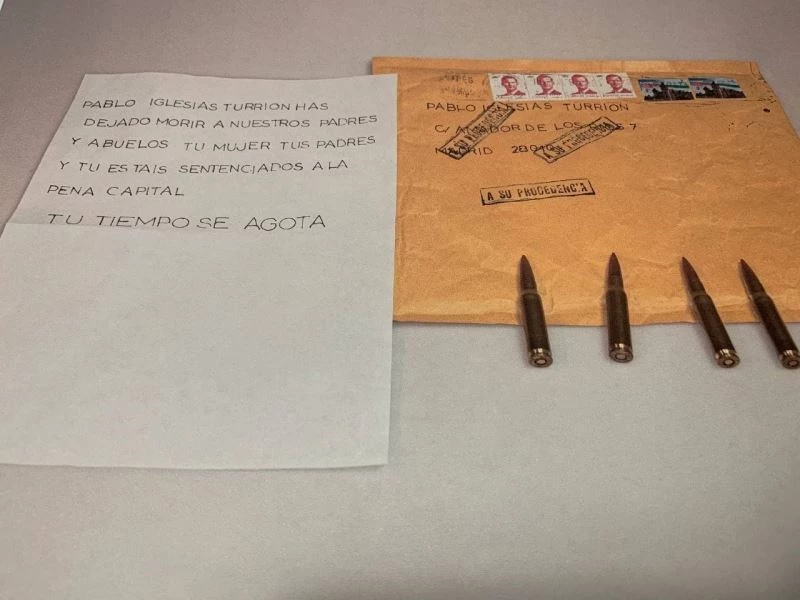 PABLO IGLESIAS TURRION HAS
DEJADO MORIR A NUESTROS PADRES
Y ABUELOS TU MUJER TUS PADRES
Y TU ESTAIS SENTENCIADOS A LA
PENA CAPITAL
TU TIEMPO SE AGOTA
PABLO IGLESIAS TURRION
C/ DE LOS 7
MADRID 28040
A SU PROCEDENCIA
A SU PROCEDENCIA
A SU PROCEDENCIA